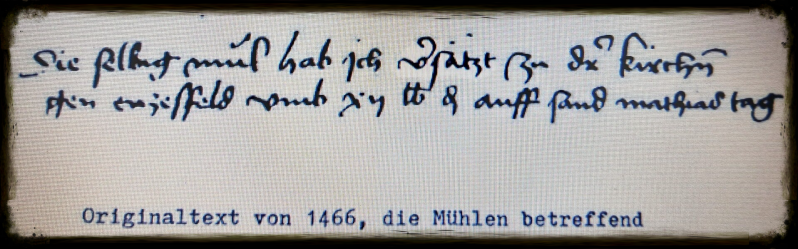 Die selbng mül hab ich vsätzt zu der kirchn
gen enzesfeld vmb xij auff sand mathias tag
Originaltext von 1466, die Mühlen betreffend